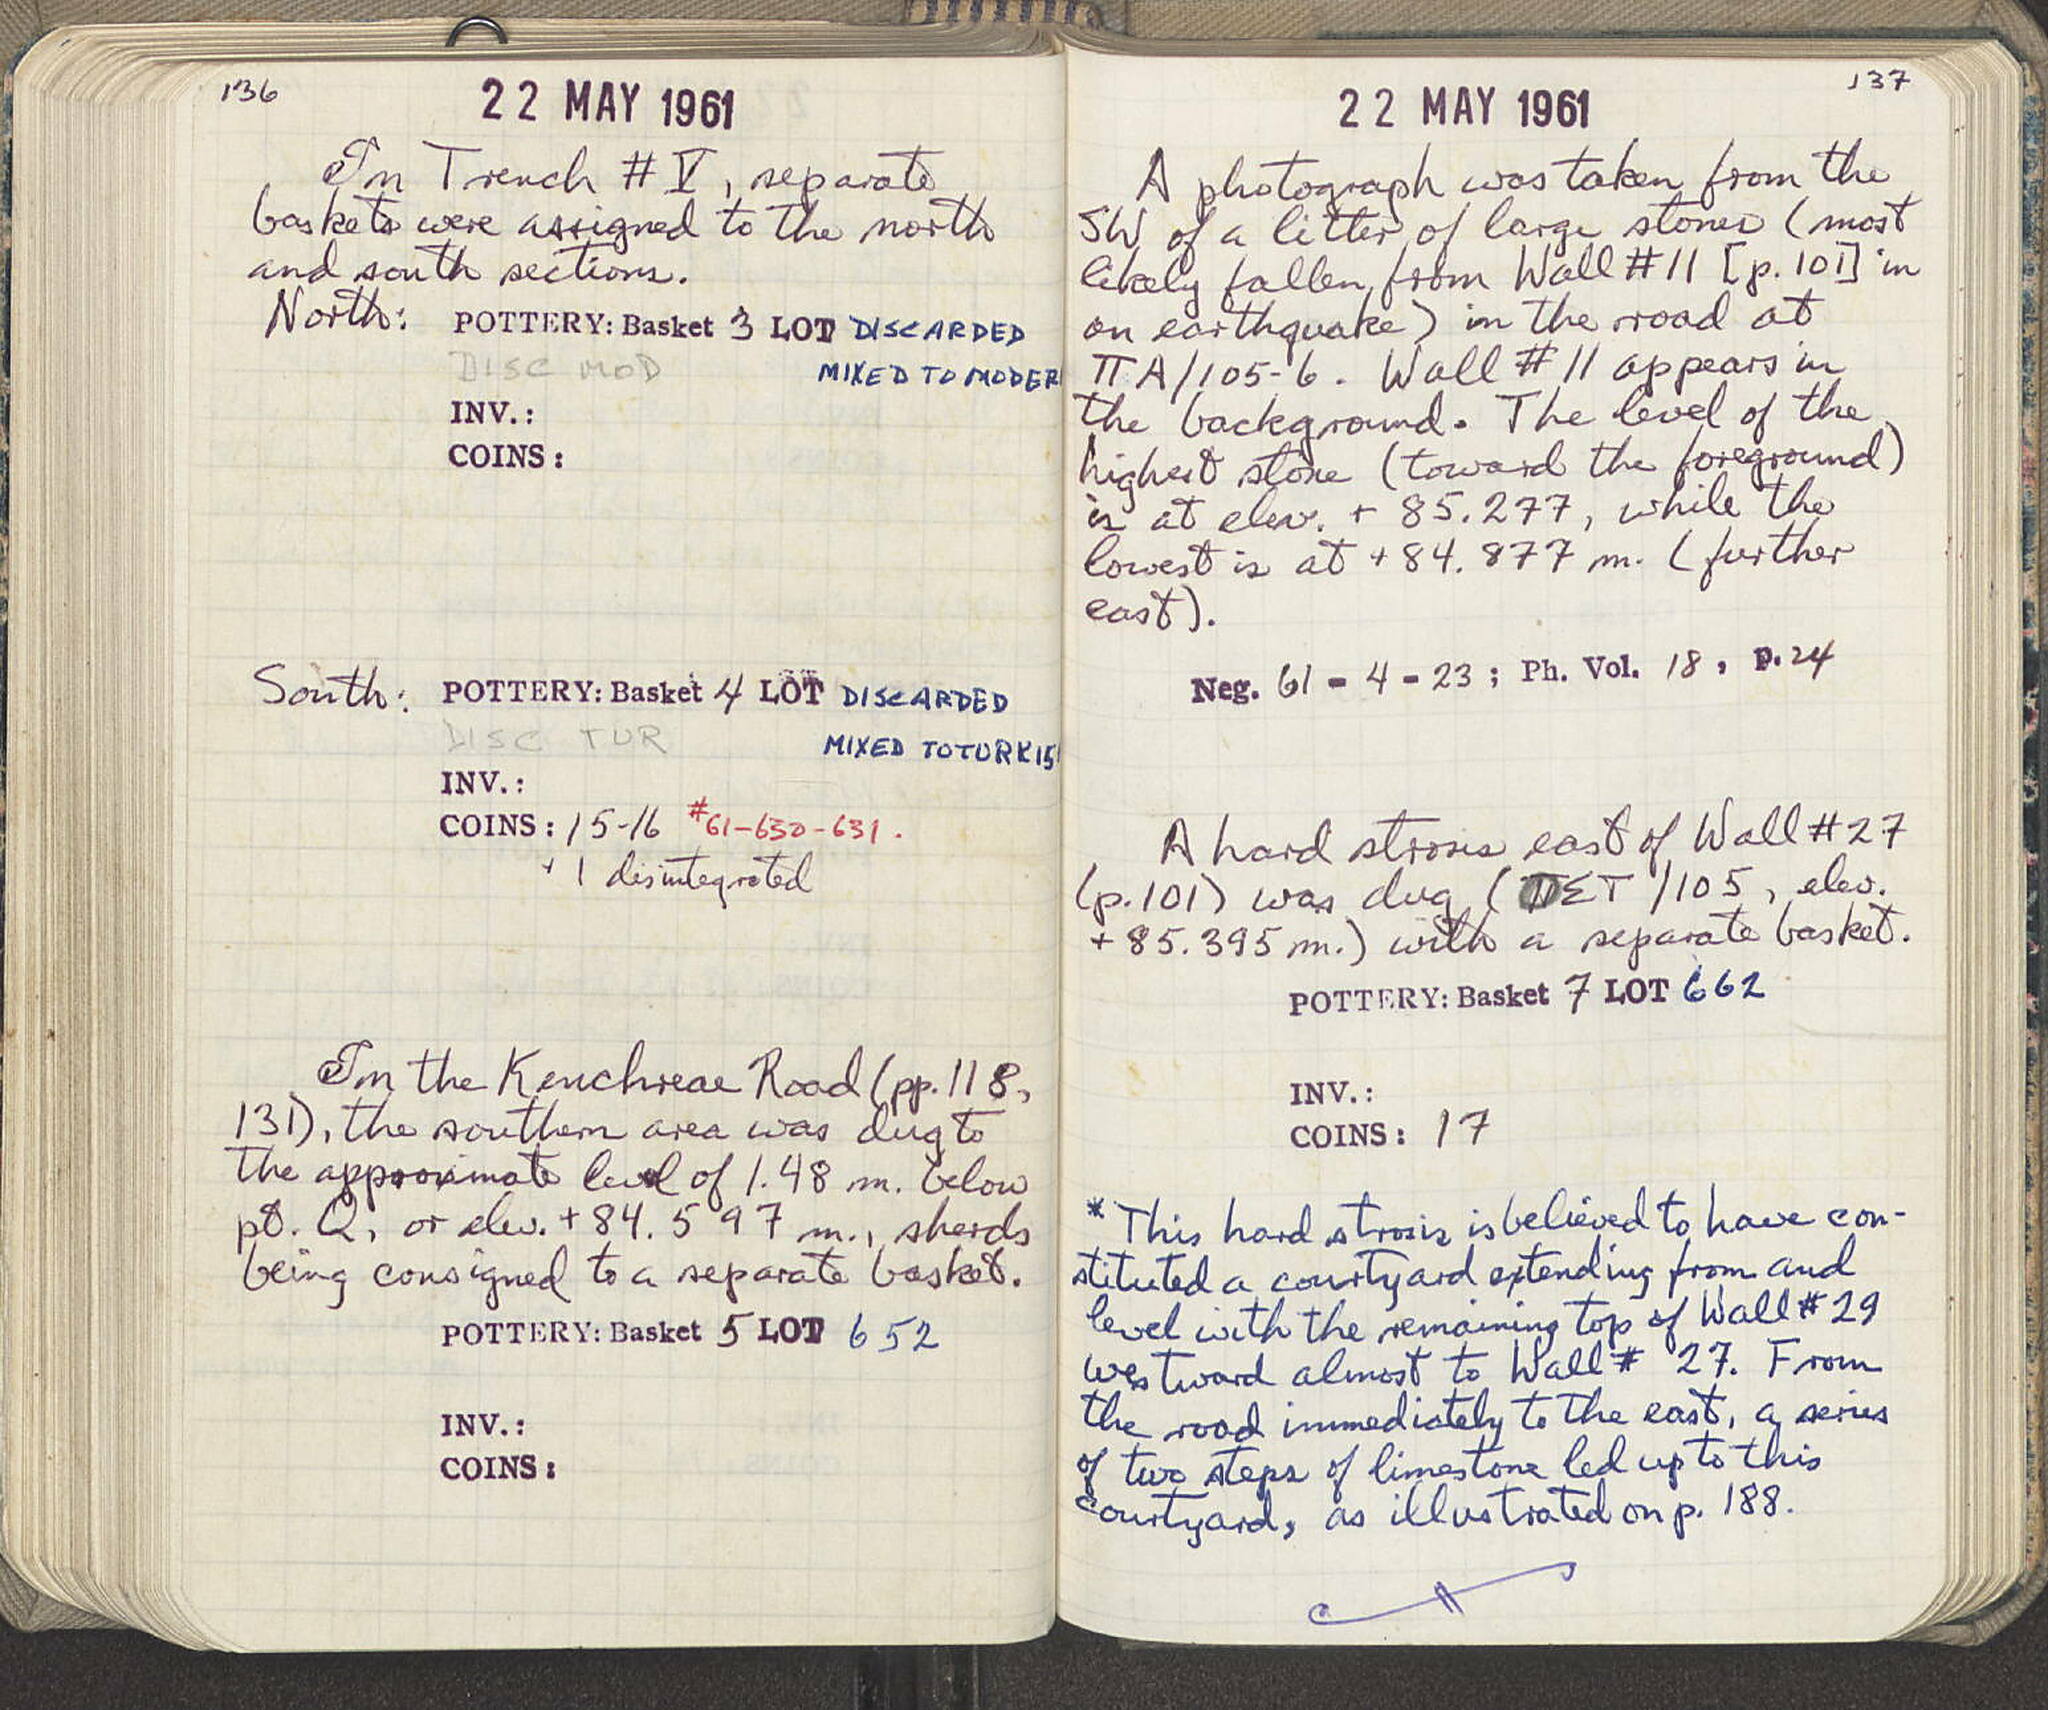 136
22 MAY 1961
In Trench # V, separate
baskets were assigned to the north
and south sections.
North: POTTERY: Basket 3 LOT DISCARDED
DISC MOD MIXED TO MODER
INV.:
COINS:
South: POTTERY: Basket 4 LOT DISCARDED
DISC TUR MIXED TO TURKIS
INV.:
COINS: 15-16 #61-630-631.
+ 1 disintegrated
In the Kenchreae Road (pp. 118,
131), the southern area was dug to
the approximate level of 1.48 m. below
pt. Q, or elev. +84.597 m., sherds
being consigned to a separate basket.
POTTERY: Basket 5 LOT 652
INV.:
COINS:
137
22 MAY 1961
A photograph was taken from the
SW of a litter of large stones (most
likely fallen from Wall #11 [p. 101] in
an earthquake) in the road at
ΠA/105-6. Wall #11 appears in
the background. The level of the
highest stone (toward the foreground)
is at elev. + 85.277, while the
lowest is at +84.877 m. (further
east).
Neg. 61-4-23; Ph. Vol. 18, p. 24
A hard strosis east of Wall #27
(p. 101) was dug (ΠΣΤ/105, elev.
+85.395 m.) with a separate basket.
POTTERY: Basket 7 LOT 662
INV.:
COINS: 17
*This hard strosis is believed to have con-
stituted a courtyard extending from and
level with the remaining top of Wall #29
westward almost to Wall # 27. From
the road immediately to the east, a series
of two steps of limestone led up to this
courtyard, as illustrated on p. 188.